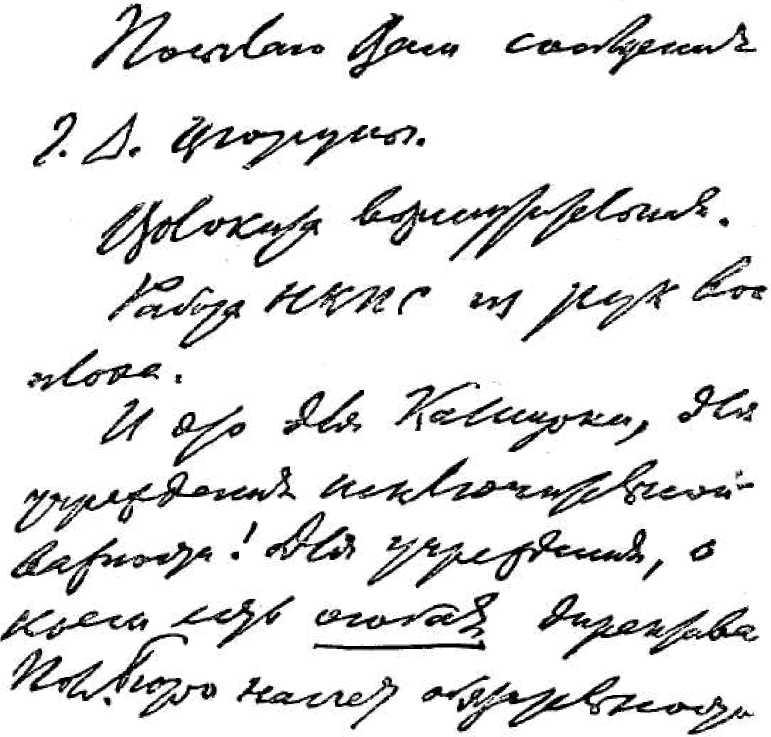 Посылаю Вам сообщение
Г. Д. Цюрупы.
Волокита возмутительная.
Работа НКПС из рук вон
плоха.
И это для Каширки, для
учреждения исключительной
важности! Для учреждения, о
коем есть особая директива
Пол. бюро насчет обязательности